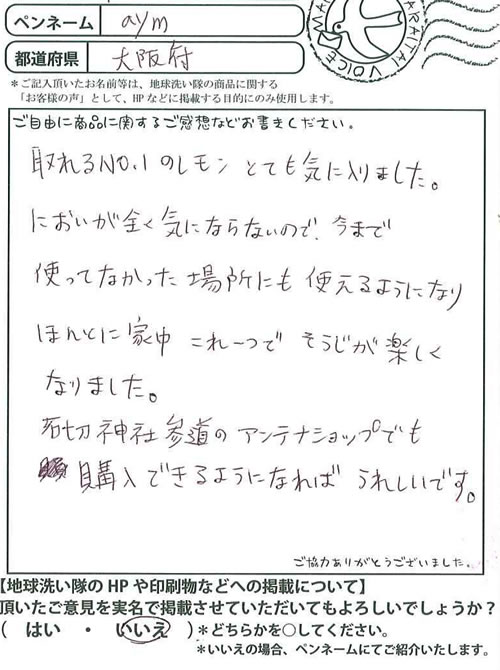 ペンネーム aym
都道府県 大阪府
ARAITAI VOICE
＊ご記入頂いたお名前等は、地球洗い隊の商品に関する
「お客様の声」として、HPなどに掲載する目的にのみ使用します。
ご自由に商品に関するご感想などお書きください。
取れるNO.1のレモン とても気に入りました。
においが全く気にならないので、今まで
使ってなかった場所にも使えるようになり
ほんとに家中これ一つでそうじが楽しく
なりました。
石切神社参道のアンテナショップでも
購入できるようになればうれしいです。
ご協力ありがとうございました。
【地球洗い隊のHPや印刷物などへの掲載について】
頂いたご意見を実名で掲載させていただいてもよろしいでしょうか？
（ はい ・ いいえ ）＊どちらかを○してください。
＊いいえの場合、ペンネームにてご紹介いたします。